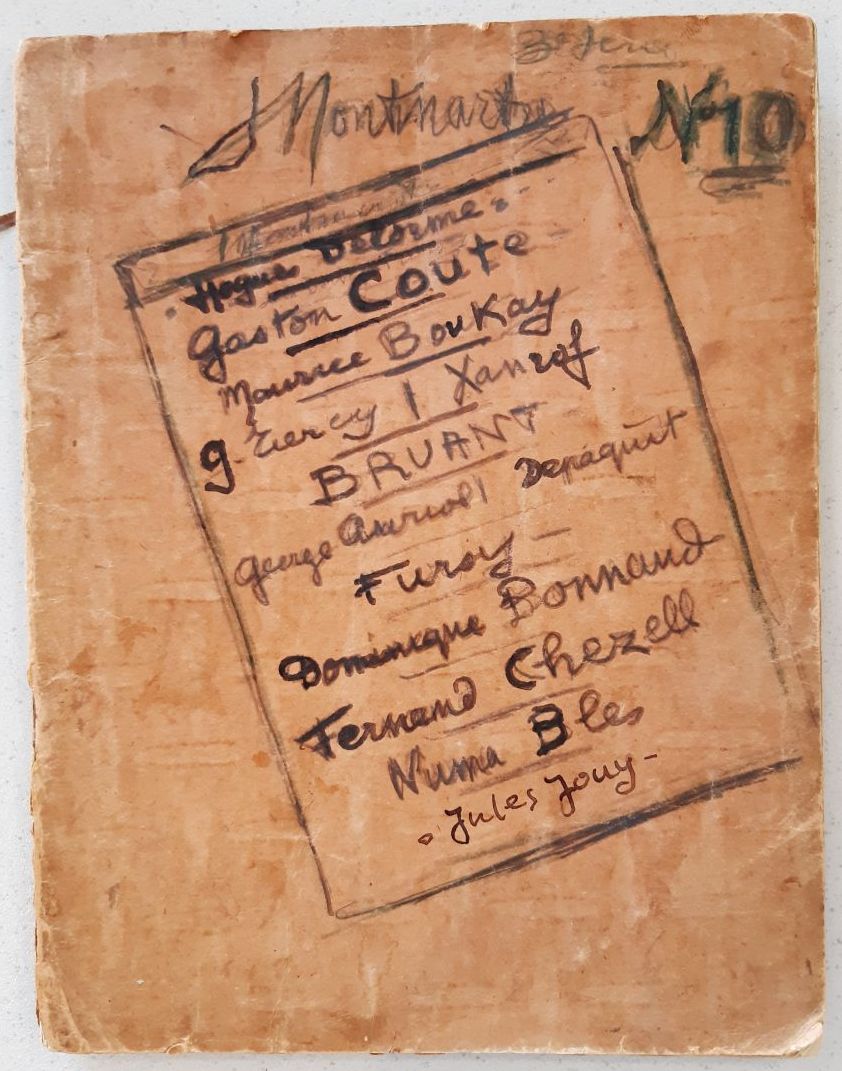 3e Serie
Montmartre
N°10
Hugues Delorme
Gaston Coute -
Maurice Boukay
g. Tiercy | Xanrof
BRUANT
George Auriol | Depaquit
Fursy -
Dominique Bonnaud
Fernand Chezell
Numa Bles
Jules Jouy -